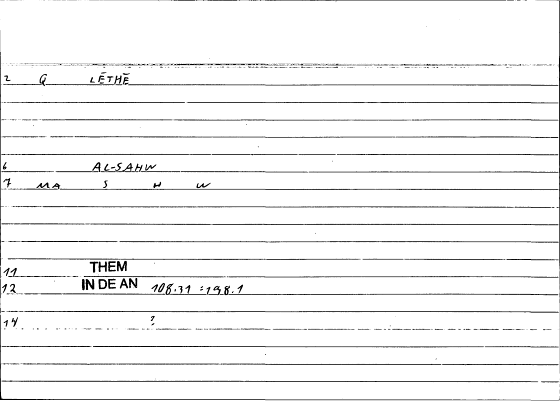 2 G LĒTHĒ
6 AL-SAHW
7 MA S H W
11 THEM
12 IN DE AN 108.31 = 198.1
14 ?